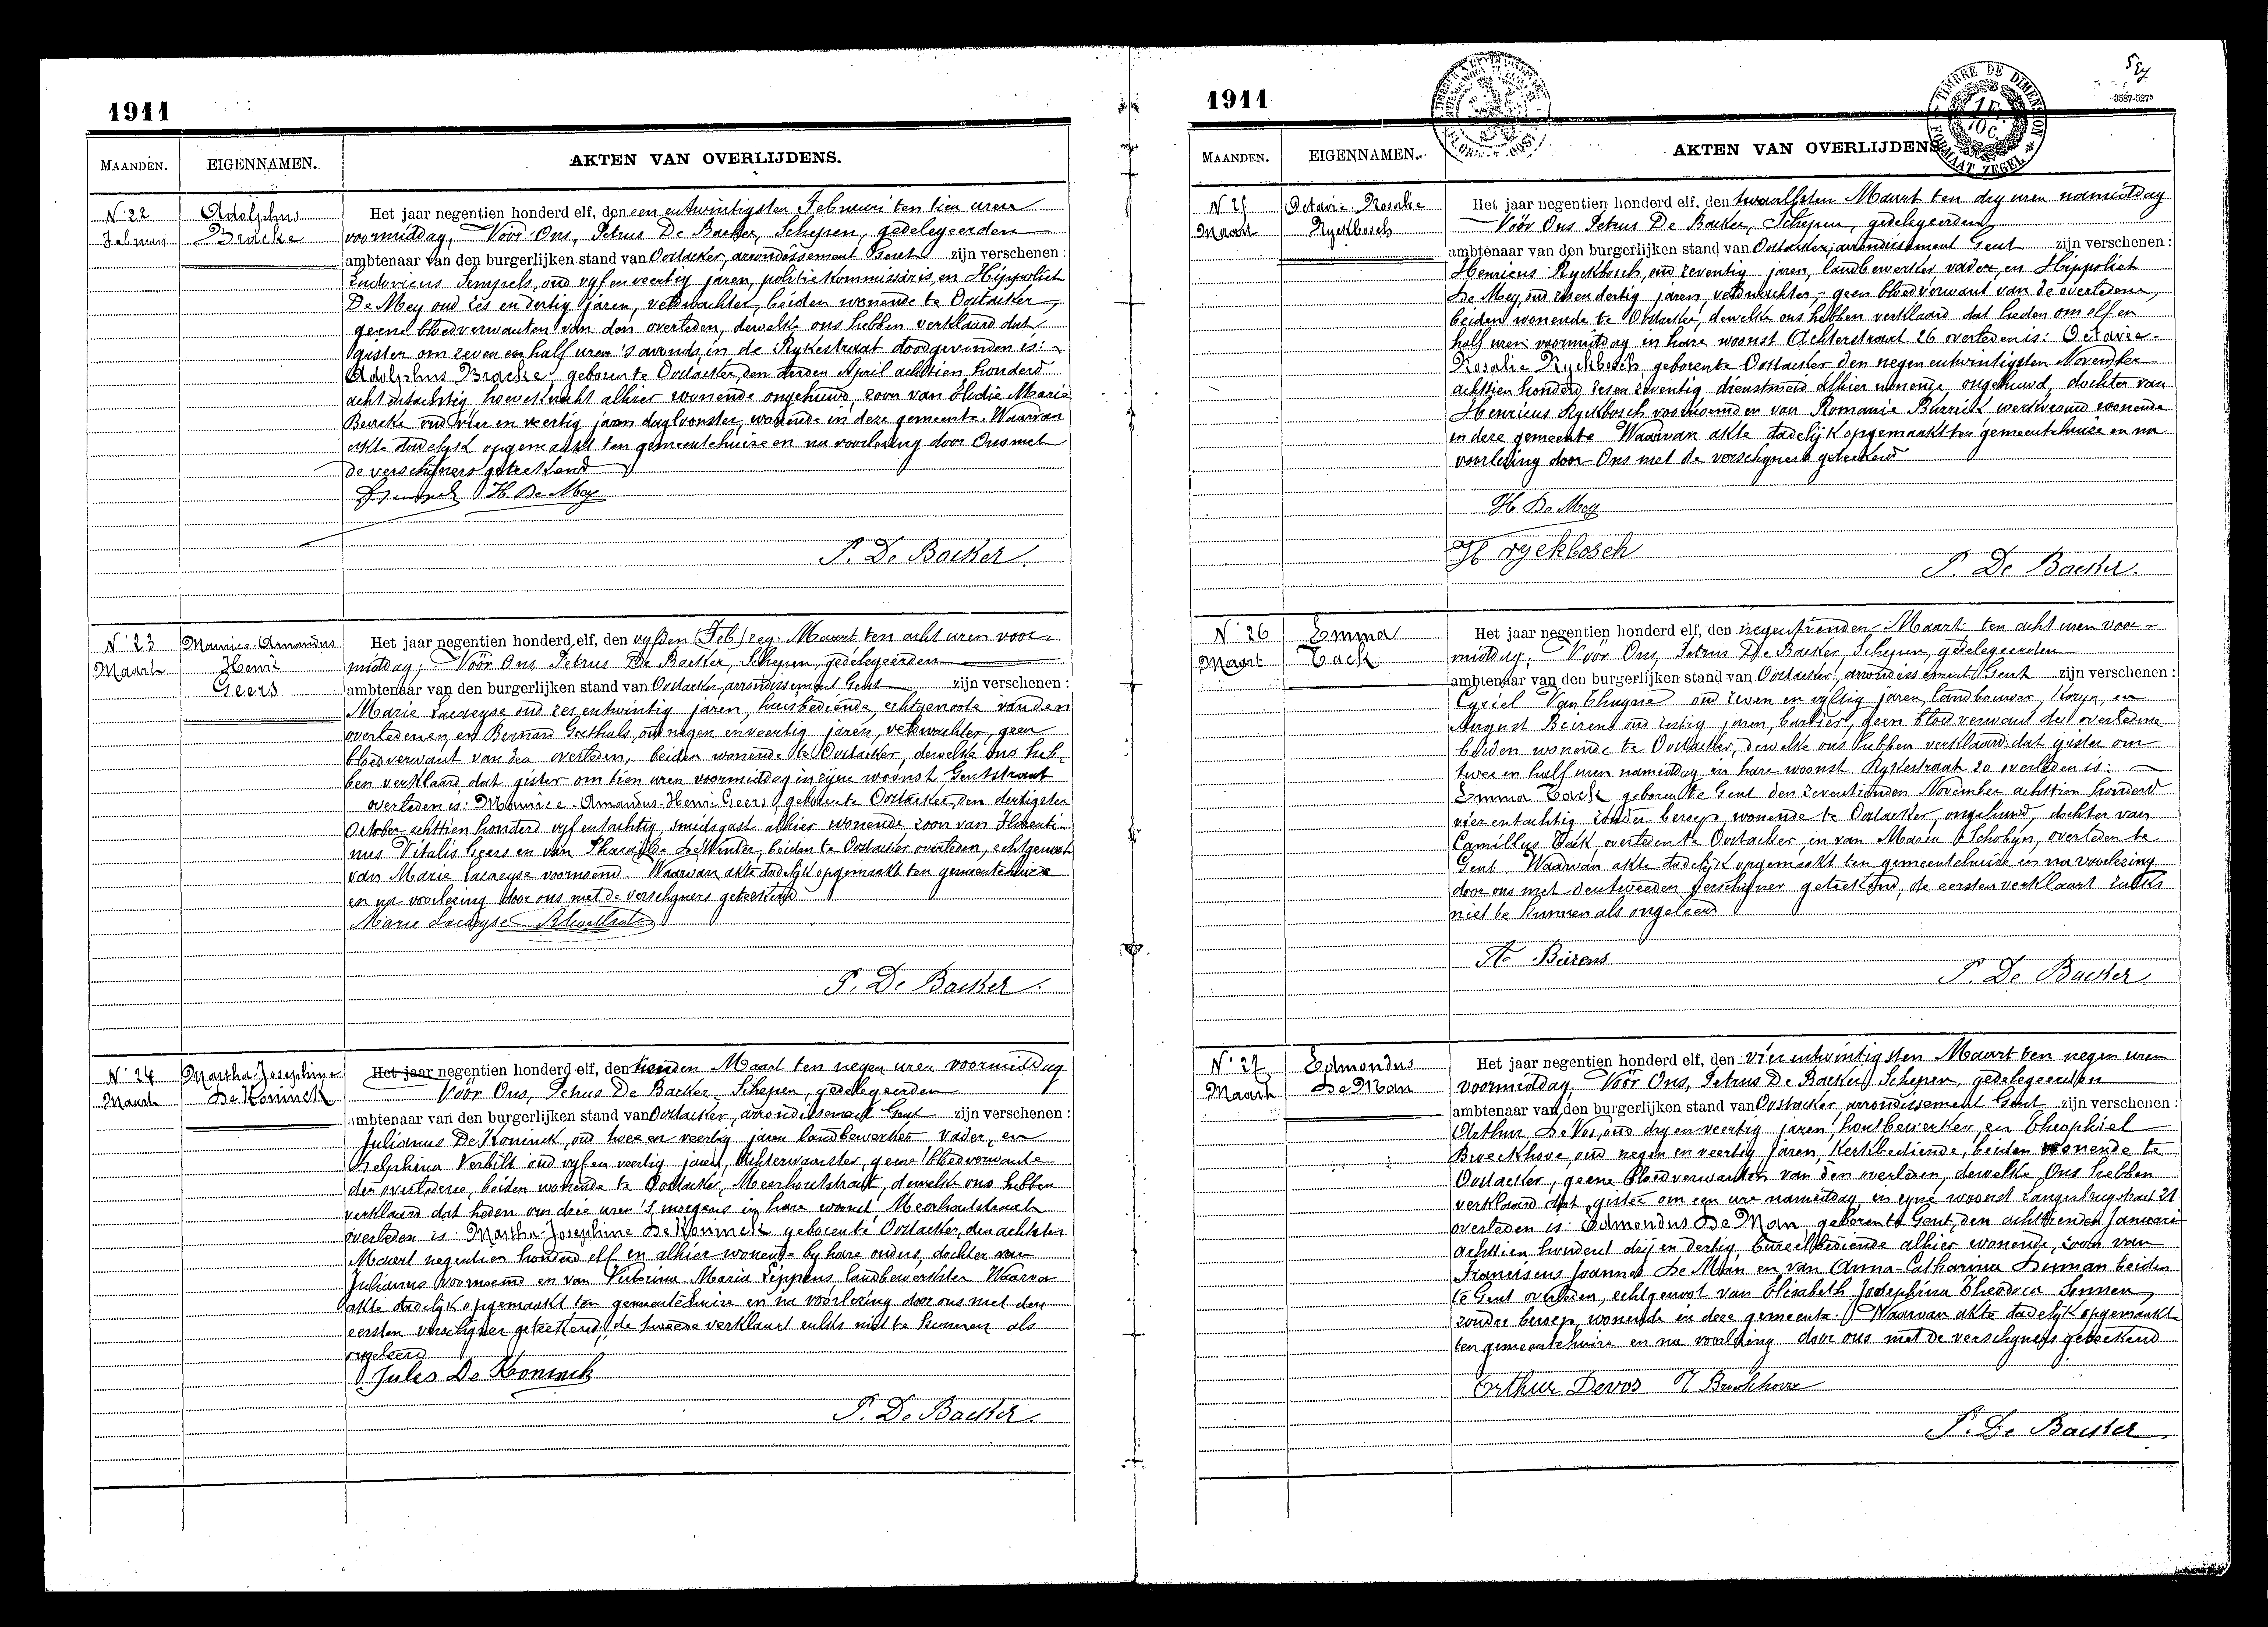 1911
MAANDEN. EIGENNAMEN. AKTEN VAN OVERLIJDENS.
N° 22
Februari
Adolphus
Bracke
Het jaar negentien honderd elf, den een entwintigsten Februari ten tien uren
voormiddag, Vóór Ons, Petrus De Backer, Schepen, gedelegeerden
ambtenaar van den burgerlijken stand van Oostacker, arrondissement Gent zijn verschenen:
Ludovicus Sempels, oud vyf en veertig jaren, politiekommissaris, en Hippoliet
De Mey oud zes en dertig jaren, veldwachter, beiden wonende te Oostacker,
geene bloedverwanten van den overleden, dewelke ons hebben verklaard dat
gister om zeven en half uren 's avonds, in de Rykestraat doodgevonden is:
Adolphus Bracke, geboren te Oostacker, den derden April achttien honderd
acht entachtig, hoeveknecht alhier wonende ongehuwd, zoon van Elodie Marie
oud vier en veertig jaren dagloonster, wonende in deze gemeente. Waarvan
akte dadelyk opgemaakt ten gemeentehuize en na voorlezing door Ons met
de verschijners geteekend
H. De Mey
P. De Backer
N° 23
Maart
Maurice-Amandus
Henri
Geers
Het jaar negentien honderd elf, den vyfden (Feb) zeg: Maart ten acht uren voor-
middag, Vóór Ons Petrus De Backer, Schepen, gedelegeerden
ambtenaar van den burgerlijken stand van Oostacker, arrondissement Gent zijn verschenen:
Marie Lacaeyse oud zes entwintig jaren, huisbediende, echtgenoote van den
overledenen, en Bernard Goethals, oud negen enveertig jaren, veldwachter, geen
bloedverwant van den overleden, beiden wonende te Oostacker, dewelke ons heb-
ben verklaard dat gister om tien uren voormiddag in zyne woonst, Gentstraat
overleden is: Maurice-Amandus-Henri Geers, geboren te Oostacker, den dertigsten
October achttien honderd vyf entachtig, smidsgast alhier wonende zoon van Florenti-
nus Vitalis Geers en van De Winter, beiden te Oostacker overleden, echtgenoot
van Marie Lacaeyse voornoemd. Waarvan akte dadelijk opgemaakt ten gemeentehuize
en na voorlezing door ons met de verschyners geteekend
Marie Lacaeyse B Goethals
P. De Backer
N° 24
Maart
Martha-Josephine
De Koninck
Het jaar negentien honderd elf, den tienden Maart ten negen uren voormiddag
Vóór Ons, Petrus De Backer, Schepen, gedelegeerden
ambtenaar van den burgerlijken stand van Oostacker, arrondissement Gent zijn verschenen:
Julianus De Koninck, oud twee en veertig jaren landbewerker vader, en
Delphina Verbilt oud vyf en veertig jaren, Achterwaarster, geene bloedverwante
der overledene, beiden wonende te Oostacker, Meerhoutstraat, dewelke ons hebben
verklaard dat heden om dree uren 's morgens in hare woonst Meerhoutstraat
overleden is: Martha-Josephine De Koninck geboren te Oostacker, den achtsten
Maart negentien honderd elf en alhier wonende by hare ouders, dochter van
Julianus voornoemd en van Victorina Maria Seppens landbewerkster Waarva
akte dadelijk opgemaakt ten gemeentehuize en na voorlezing door ons met den
eersten verschyner geteekend, de tweede verklaart zulks niet te kunnen als
ongeleerd
Jules De Koninck
P. De Backer
1911
TIMBRE DE DIMENSION
1 F. 10 C.
FORMAAT ZEGEL
3587-5275
MAANDEN. EIGENNAMEN. AKTEN VAN OVERLIJDENS
N° 25
Maart
Octavie-Rosalie
Ryckbosch
Het jaar negentien honderd elf, den twaalfsten Maart ten dry uren namiddag
Vóór Ons Petrus De Backer, Schepen, gedelegeerden
ambtenaar van den burgerlijken stand van Oostacker, arrondissement Gent zijn verschenen:
Henricus Ryckbosch, oud zeventig jaren, landbewerker vader, en Hippoliet
De Mey, oud zesen dertig jaren, veldwachter, geen bloedverwant van de overledene,
beiden wonende te Oostacker, dewelke ons hebben verklaard dat heden om elf en
half uren voormiddag in hare woonst Achterstraat 26 overleden is: Octavie-
Rosalie Ryckbosch, geboren te Oostacker den negen entwintigsten November
achttien honderd zesen zeventig dienstmeid alhier wonende ongehuwd, dochter van
Henricus Ryckbosch voornoemd en van Romanie Burrick werkvrouw wonende
in deze gemeente Waarvan akte dadelijk opgemaakt ten gemeentehuize en na
voorlezing door Ons met de verschyners geteekend
H. De Mey
H ryckbosch
P. De Backer
N° 26
Maart
Emma
Tack
Het jaar negentien honderd elf, den negentienden Maart ten acht uren voor-
middag, Vóór Ons, Petrus De Backer Schepen, gedelegeerden
ambtenaar van den burgerlijken stand van Oostacker, arrondissement Gent zijn verschenen:
Cyriel Van Thuyne oud zeven en vyftig jaren, landbouwer, Kozyn, en
August Beirens oud zestig jaren, barbier, geen bloedverwant der overledene
beiden wonende te Oostacker, dewelke ons hebben verklaard dat gister om
twee en half uren namiddag in hare woonst Rykestraat 20 overleden is:
Emma Tack geboren te Gent den zeventienden November achttien honderd
vier entachtig zonder beroep, wonende te Oostacker, ongehuwd, dochter van
Camillus Tack overleden te Oostacker, en van Maria Schobyn, overleden te
Gent Waarvan akte dadelijk opgemaakt ten gemeentehuize en na voorlezing
door ons met den tweeden verschijner geteekend, de eersten verklaart zulks
niet te kunnen als ongeleerd
A. Beirens
P. De Backer
N° 27
Maart
Edmondus
De Man
Het jaar negentien honderd elf, den vier entwintigsten Maart ten negen uren
voormiddag, Vóór Ons, Petrus De Backer, Schepen, gedelegeerden
ambtenaar van den burgerlijken stand van Oostacker arrondissement Gent zijn verschenen:
Arthur De Vos, oud dry en veertig jaren, houtbewerker, en Theophiel
Broeckhove, oud negen en veertig jaren, Kerkbediende, beiden wonende te
Oostacker, geene bloedverwanten van den overleden, dewelke Ons hebben
verklaard dat gister om een ure namiddag in zyne woonst Langenbrugstraat 21
overleden is: Edmondus De Man, geboren te Gent, den achttienden Januari
achttien honderd drij en dertig, bureelbediende alhier wonende, zoon van
Franciscus Joannes De Man en van Anna-Catharina Dinman beiden
te Gent overleden, echtgenoot van Elisabeth Josephina Theodora Sonnen
zonder beroep, wonende in deze gemeente. Waarvan akte dadelijk opgemaakt
ten gemeentehuize en na voorlezing door ons met de verschyners geteekend
Arthur Devos T Broeckhove
P. De Backer